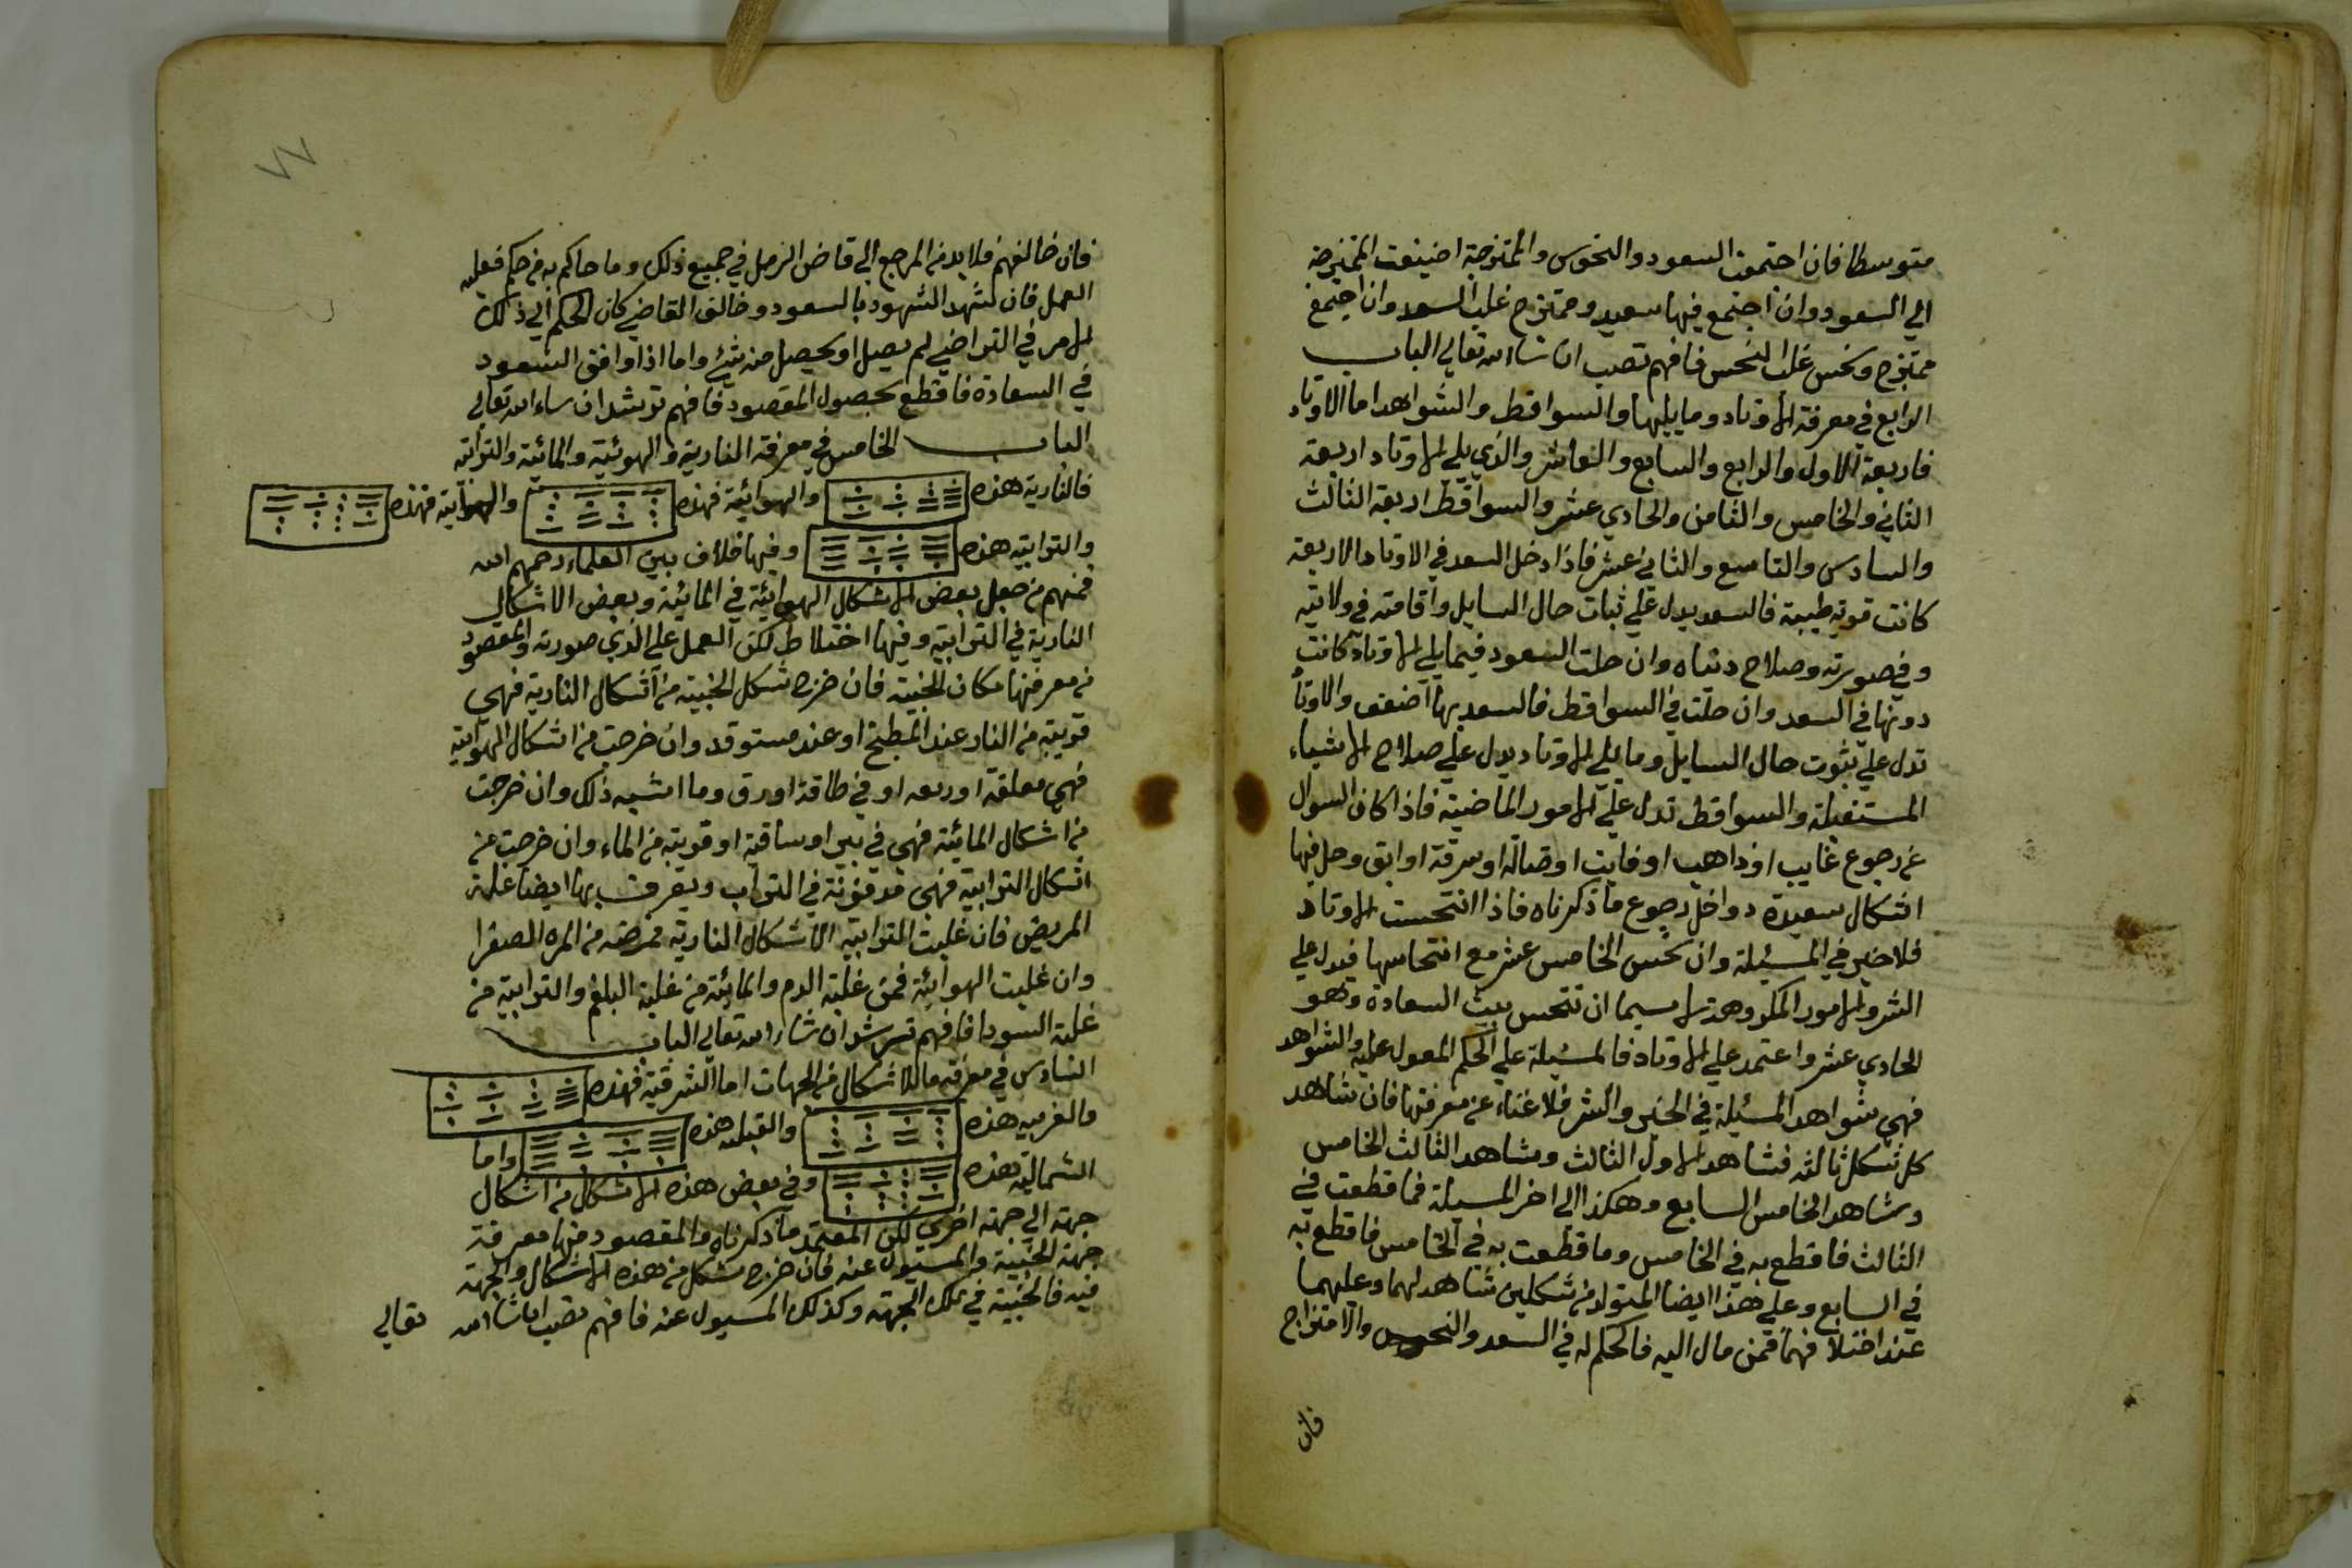 متوسطا فان اجتمعت السعود والنحوس والممتزجة اضيفت الممتزجة
الي السعود وان اجتمع فيها سعيد وممتزج غلب السعد وان اجتمع
ممتزج ونحس غلب النحس فافهم تصب ان شاء الله تعالي الباب
الرابع في معرفة الاوتاد وما يليها والسواقط والشواهد اما الاوتاد
فاربعة الاول والرابع والسابع والعاشر والذي يلي الاوتاد اربعة
الثاني والخامس والثامن والحادي عشر والسواقط اربعة الثالث
والسادس والتاسع والثاني عشر فاذا دخل السعد في الاوتاد الاربعة
كانت قوية طيبة فالسعد يدل علي ثبات حال السايل واقامته في ولايته
وفي صورته وصلاح دنياه وان حلت السعود فيما يلي الاوتاد كانت
دونها في السعد وان حلت في السواقط فالسعد بها اضعف والاوتاد
تدل علي ثبوت حال السايل وما يلي الاوتاد يدل علي صلاح الاشياء
المستقبلة والسواقط تدل علي الامور الماضية فاذا كان السوال
عن رجوع غايب او ذاهب او فايت او ضالة او سرقة او ابق وحل فيها
اشكال سعيدة دواخل رجوع ما ذكرناه فاذا انتحست الاوتاد
فلا خير في المسئلة وان نحس الخامس عشر مع انتحاسها فيدل علي
الشر والامور المكروهة لا سيما ان تنحس بيت السعادة وهو
الحادي عشر واعتمد علي الاوتاد فالمسئلة علي الحكم المعول عليه والشواهد
فهي شواهد المسئلة في الخير والشر فلا غناء عن معرفتها فان شاهد
كل شكل ثالثه فشاهد الاول الثالث ومشاهد الثالث الخامس
ومشاهد الخامس السابع وهكذا الي اخر المسئلة فما قطعت في
الثالث فاقطع به في الخامس وما قطعت به في الخامس فاقطع به
في السابع وعلي هذا ايضا المتولد من شكلين شاهد لهما وعليهما
عند اختلافهما فمن مال اليه فالحكم له في السعد والنحوس والامتزاج
فان
٧٧
فان خالفهم فلا بد من المرجع الي قاضي الرمل في جميع ذلك وما حاكم به من حكم فعليه
العمل فان شهد الشهود بالسعود وخالف القاضي كان الحكم الي ذلك
الامر في التراضي لم يصل او يحصل منه شيئ واما اذا وافق السعود
في السعادة فاقطع بحصول المقصود فافهم ترشد ان شاء الله تعالي
الباب الخامس في معرفة النارية والهوئية والمائية والترابية
فالنارية هذه والهوائية فهذه والهوآيية فهذه
والترابية هذه وفيها خلاف بين العلماء رحمهم الله
فمنهم من جعل بعض الاشكال الهوائية في المائية وبعض الاشكال
النارية في الترابية وفيها اختلاط لكن العمل علي الذي صورته والمقصود
من معرفتها مكان الخبية فان خرج شكل الخبية من اشكال النارية فهي
قريبة من النار عند المطبخ او عند مستوقد وان خرجت من اشكال الهوايية
فهي معلقة او ريعه او في طاقة او رق وما اشبه ذلك وان خرجت
من اشكال المائية فهي في بير او ساقية او قريبة من الماء وان خرجت من
اشكال الترابية فهي مدفونة في التراب ويعرف بها ايضا علة
المريض فان غلبت الترابية الاشكال النارية فمرضه من المره الصفرا
وان غلبت الهوائية فمن غلبة الدم والمائية من غلبة البلغم والترابية من
غلبة السودا فافهم ترشد ان شاء الله تعالي الباب
السادس في معرفة ما للاشكال من الجهات اما الشرقية فهذه
والغربيه هذه والقبليه هذه واما
الشمالية هذه وفي بعض هذه الاشكال من اشكال
جهة الي جهة اخري لكن المعتمد ما ذكرناه والمقصود منها معرفة
جهة الخبية والمسيول عنه فان خرج شكل من هذه الاشكال والجهة
فيه فالخبية في تلك الجهة وكذلك المسيول عنه فافهم تصب ان شاء الله تعالي